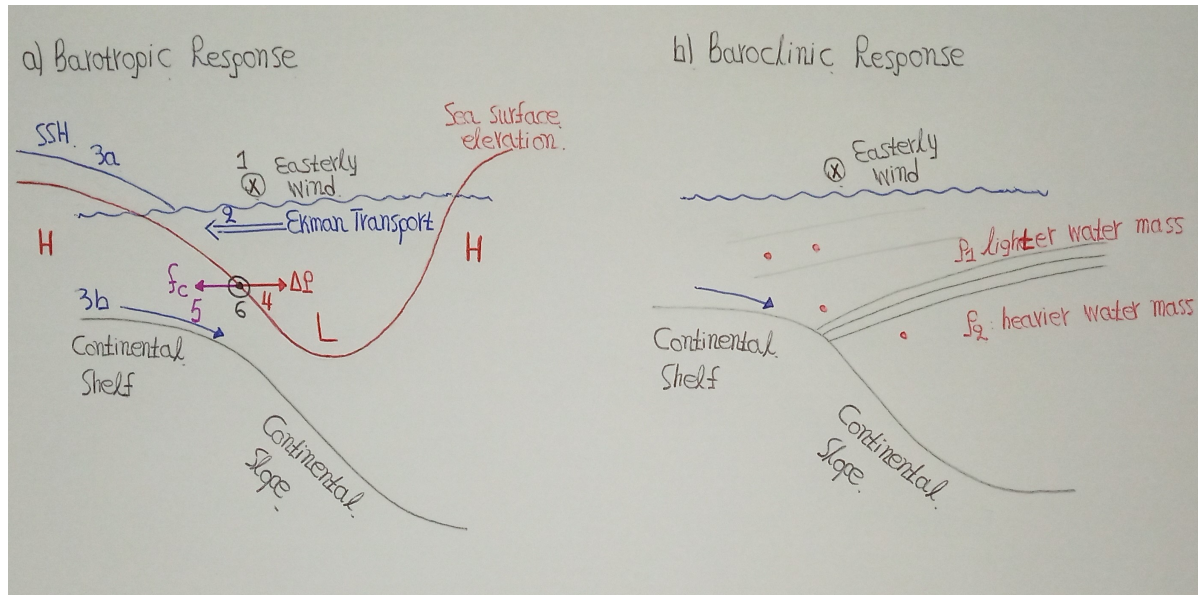 a) Barotropic Response
SSH.
3a
1 Easterly
wind
Sea surface
elevation.
2
Ekman Transport
H
H
fc
ΔP
3b
5
6
4
L
Continental
Shelf
Continental
Slope.
b) Baroclinic Response
Easterly
wind
ρ1 lighter water mass
ρ2: heavier water mass
Continental
Shelf
Continental
Slope.